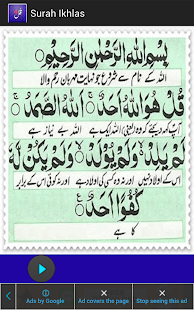 Surah Ikhlas
بِسْمِ اللهِ الرَّحْمٰنِ الرَّحِيْمِ
اللہ کے نام سے شروع جو نہایت مہربان رحم والا
قُلْ هُوَ اللهُ اَحَدٌ ۚ اَللهُ الصَّمَدُ ۚ
اللہ بے نیاز ہے
لَمْ يَلِدْ ۙ وَلَمْ يُوْلَدْ ۙ وَلَمْ يَكُنْ لَّهٗ
اور نہ وہ کسی کی اولاد ہے اور نہ کوئی اس کے برابر
كُفُوًا اَحَدٌ
کا ہے
Ads by Google
Ad covers the page
Stop seeing this ad